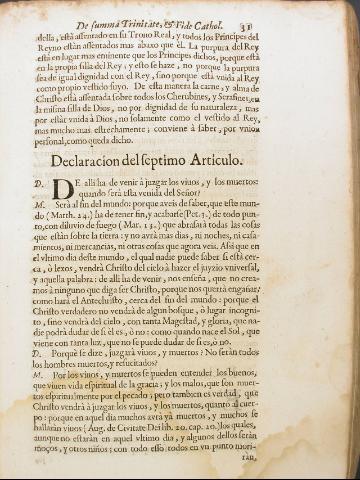 De summâ Trinitate, & Fide Cathol. 31
della, está assentado en su Trono Real, y todos los Principes del
Reyno están assentados mas abaxo que êl. La purpura del Rey
está en lugar mas eminente que los Principes dichos, porque está
en la propia silla del Rey: y esto se haze, no porque la purpura
sea de igual dignidad con el Rey, sino porque está vnida al Rey
como propio vestido suyo. De esta manera la carne, y alma de
Christo está assentada sobre todos los Cherubines, y Serafines en
la misma silla de Dios, no por dignidad de su naturaleza, mas
por estàr vnida à Dios, no solamente como el vestido al Rey,
mas mucho mas estrechamente; conviene à saber, por vnion
personal, como queda dicho.
Declaracion del septimo Articulo.
D. DE alli ha de venir à juzgar los viuos, y los muertos:
quando serà esta venida del Señor?
M. Serà al fin del mundo: porque aveis de saber, que este mun-
do (Matth. 24.) ha de tener fin, y acabarse (Pet. 3.) de todo pun-
to, con diluvio de fuego (Mar. 13.) que abrasarà todas las cosas
que estàn sobre la tierra: y no avrà mas dias, ni noches, ni casa-
mientos, ni mercancias, ni otras cosas que agora veis. Assi que en
el vltimo dia deste mundo, el qual nadie puede saber si està cer-
ca, ò lexos, vendrà Christo del cielo à hazer el juyzio vniversal,
y aquella palabra: de alli ha de venir, nos enseña, que no crea-
mos à ninguno que diga ser Christo, porque nos querrà engañar
como harà el Antechristo, cerca del fin del mundo: porque el
Christo verdadero no vendrà de algun bosque, ò lugar incogni-
to, sino vendrà del cielo, con tanta Magestad, y gloria, que na-
die podrà dudar de si è es, ò no: como quando nace el Sol, que
viene con tanta luz, que no se puede dudar de si es, ò no.
D. Porquè se dize, juzgarà viuos, y muertos? No seràn todos
los hombres muertos, y resucitados?
M. Por los viuos, y muertos se pueden entender los buenos,
que viuen vida espiritual de la gracia; y los malos, que son muer-
tos espiritualmente por el pecado; pero tambien es verdad, que
Christo vendrà à juzgar los viuos, y los muertos, quanto al cuer-
po: porque en aquel dia muchos avrà yà muertos, y muchos se
hallaràn viuos (Aug. de Civitate Dei lib. 20. cap. 20.) los quales,
aunque no estaràn en aquel vltimo dia, y algunos dellos seràn
moços, y otros niños; con todo esso todos en vn punto mori-
ràn,